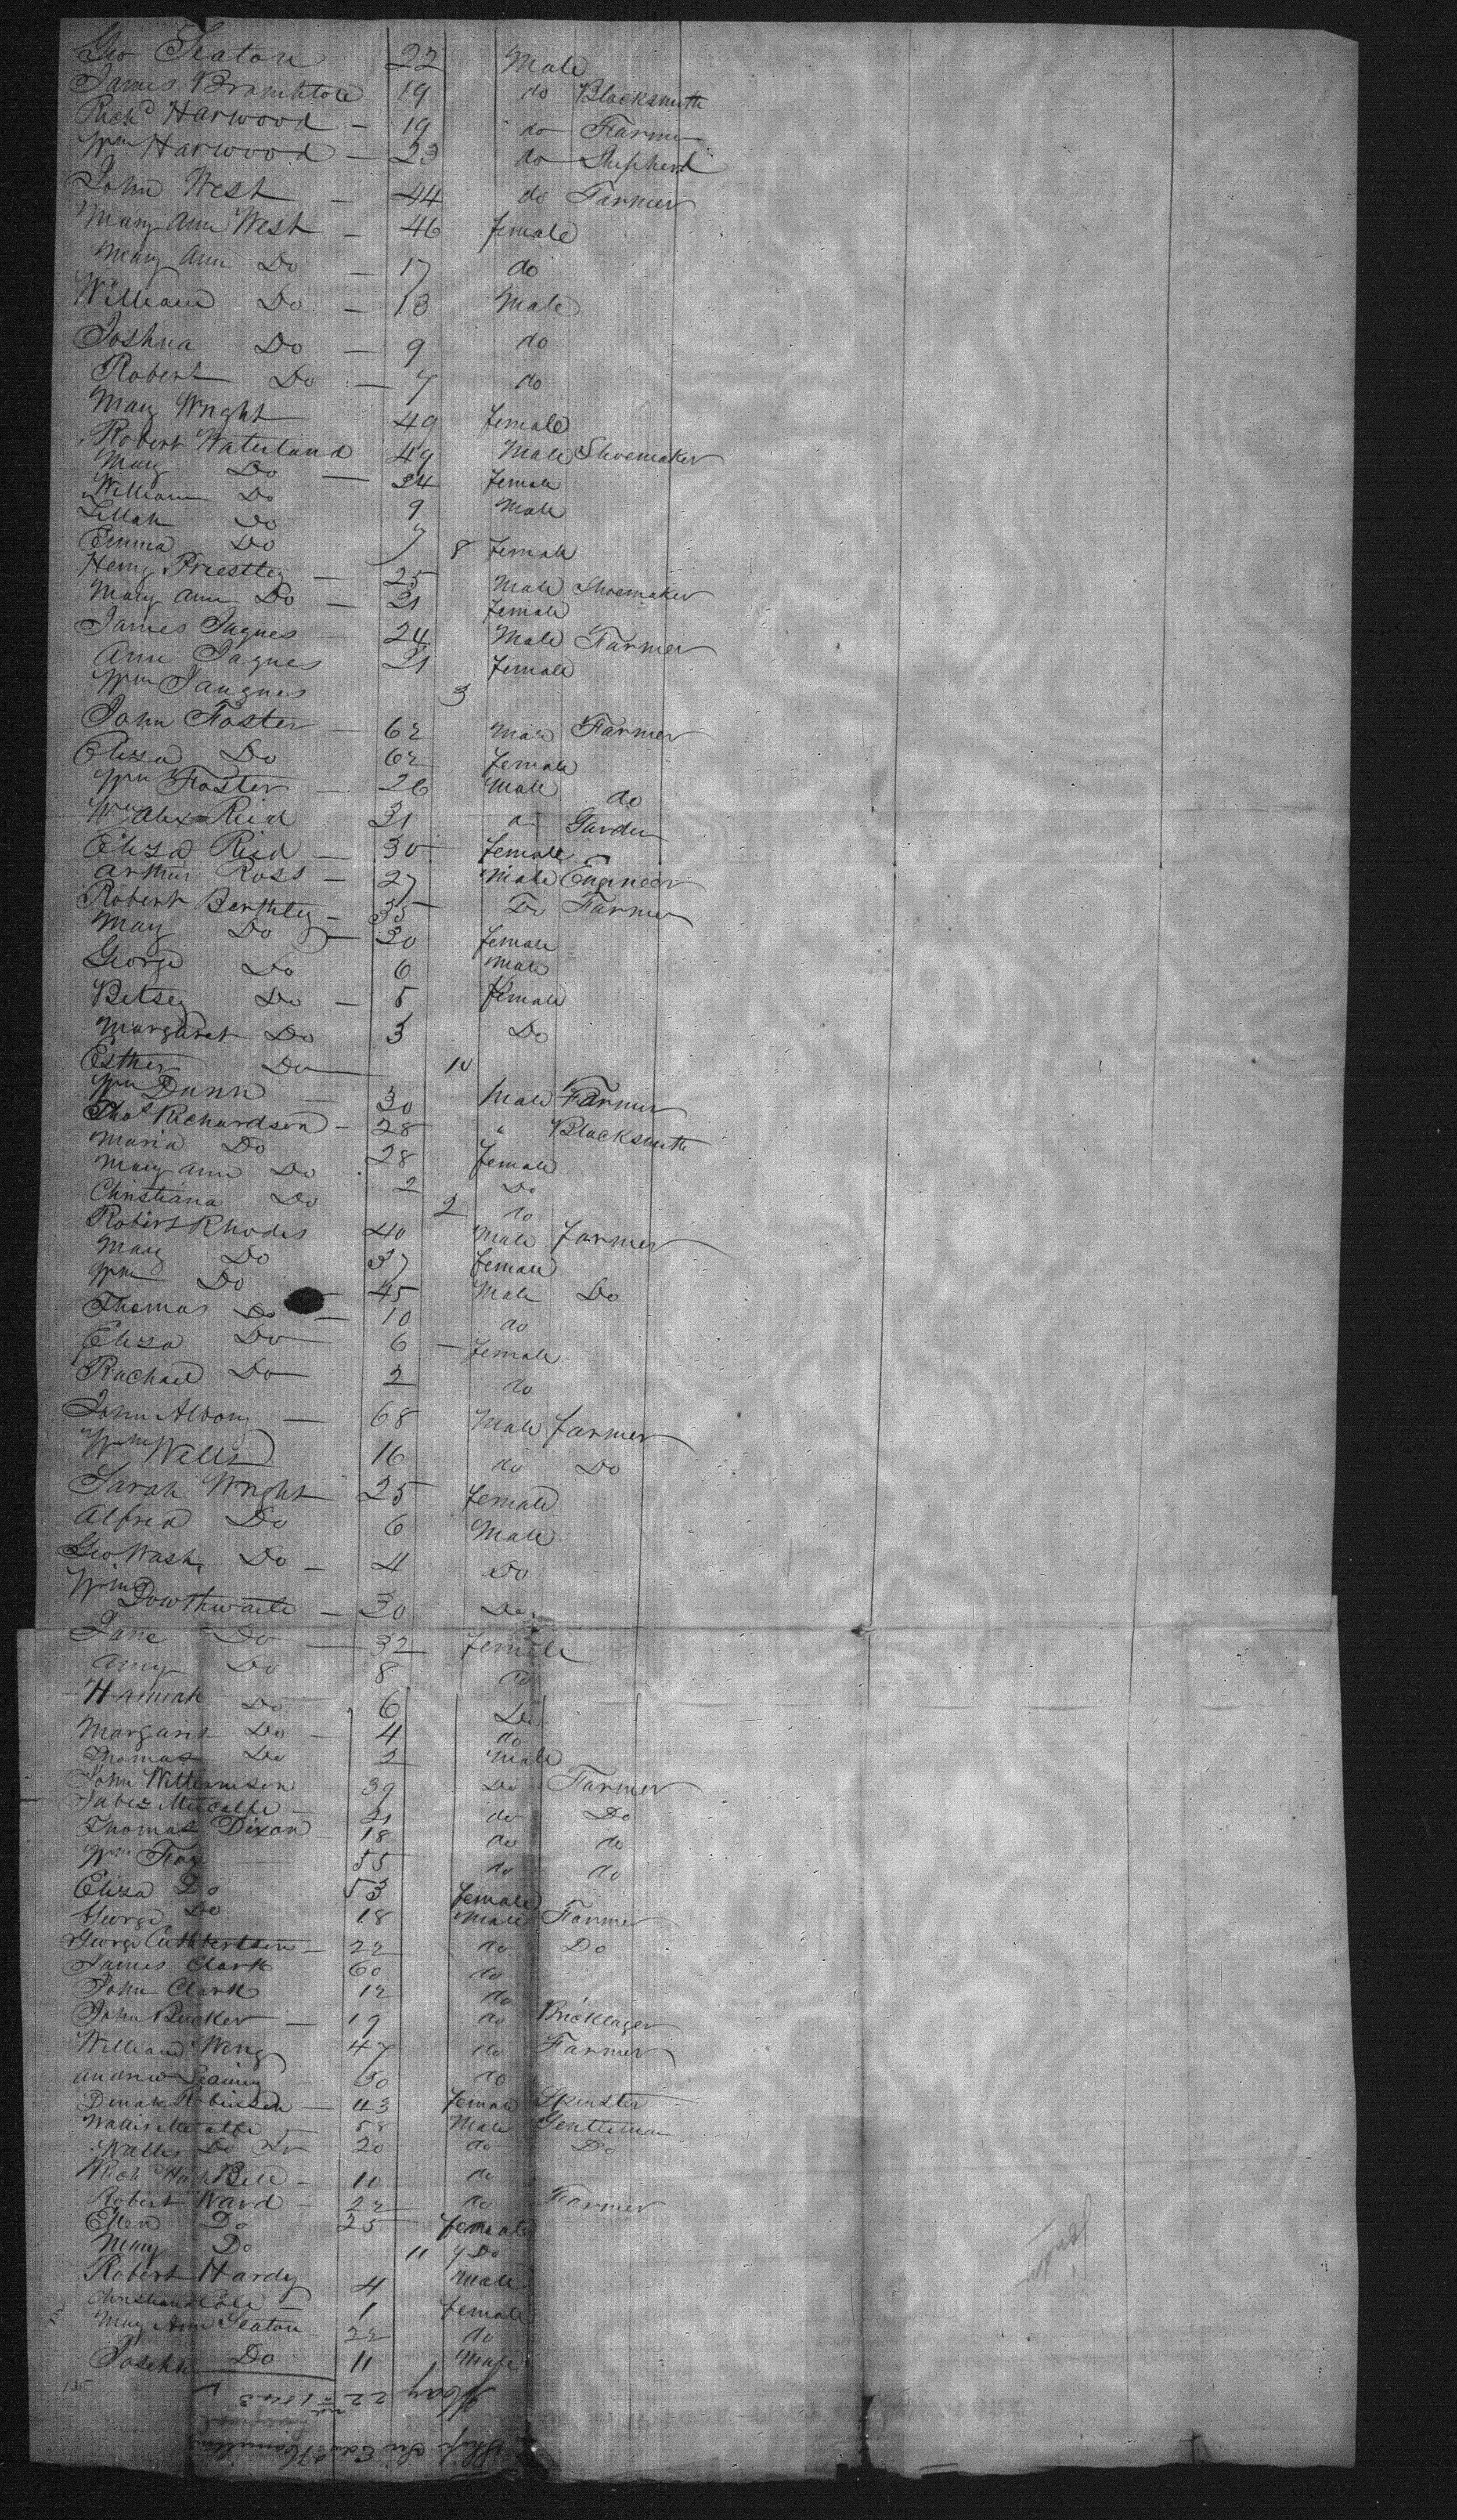 Geo Seaton 22 Male
James Bramhton 19 do Blacksmith
Richd Harwood - 19 do Farmer
Wm Harwood - 23 do Shepherd
John West - 44 do Farmer
Mary Ann West - 46 female
Mary Ann Do - 17 do
William Do - 13 Male
Joshua Do - 9 do
Robert Do - 7 do
Mary Wright 49 female
Robert Waterland 49 Male Shoemaker
Mary Do - 34 female
William Do 9 Male
Do 7
Emma Do 8 female
Henry Priestley - 25 Male Shoemaker
Mary Ann Do - 21 female
James Jaques - 24 Male Farmer
Ann Jaques 21 female
Wm Jauques 3
John Foster - 62 Male Farmer
Eliza Do 62 female
Wm Foster - 26 Male do
Wm Alex Reid 31
Eliza Reid - 30 female
Arthur Ross - 27 Male Engineer
Robert Berthley - 35 Do Farmer
Mary Do - 30 female
George Do 6 Male
Betsey Do - 5 female
Margaret Do 3 Do
Esther Do 10
Wm Dunn - 30 Male Farmer
Thos Richardson - 28 " Blacksmith
Maria Do 28 female
Mary Ann Do 2 Do
Christiana Do 2 do
Robert Rhodes 40 Male farmer
Mary Do 37 female
Wm Do 45 Male Do
Thomas Do - 10 do
Eliza Do 6 - female
Rachael Do 2 do
John Albony - 68 Male farmer
Wm Wells 16 do Do
Sarah Wright 25 female
Alfred Do 6 Male
Geo Wash. Do - 4 Do
Wm Dowthwaite - 30 Do
Jane Do - 32 female
Amy Do 8 do
Hannah Do 6 Do
Margaret Do - 4 do
Thomas Do 2 Male
John Williamson 39 Do Farmer
Jabez Metcalfe - 21 do Do
Thomas Dixon - 18 do do
Wm 55 do do
Eliza Do 53 female
George Do 18 Male Farmer
George Cuthbertson - 22 do Do
James Clark 60 do
John Clark 12 do
John - 19 do Bricklayer
William Wing 47 do Farmer
Andrew do
Dinah Robinson - 43 female Spinster
Wallis Metcalfe - 58 Male Gentleman
Wallis Do Jr 20 do Do
Rich Bell - 10 do
Robert Ward - 22 do Farmer
Ellen Do 25 female
Mary Do 11 Do
Robert Hardy 4 Male
Christiana Cole - 1 female
Mary Ann Seaton - 22 do
Joseph Do 11 Male
135
May 22nd 1843
Liverpool
Ship Sir Edwd Hamilton